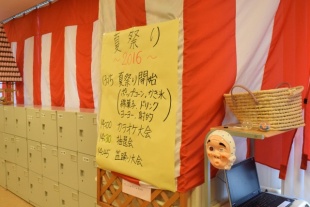 夏祭り
～2016～
13:45 夏祭り開始
(ポップコーン、かき氷、
綿菓子、ドリンク
ヨーヨー、射的)
14:00 カラオケ大会
14:30 抽選会
14:45 盆踊り大会